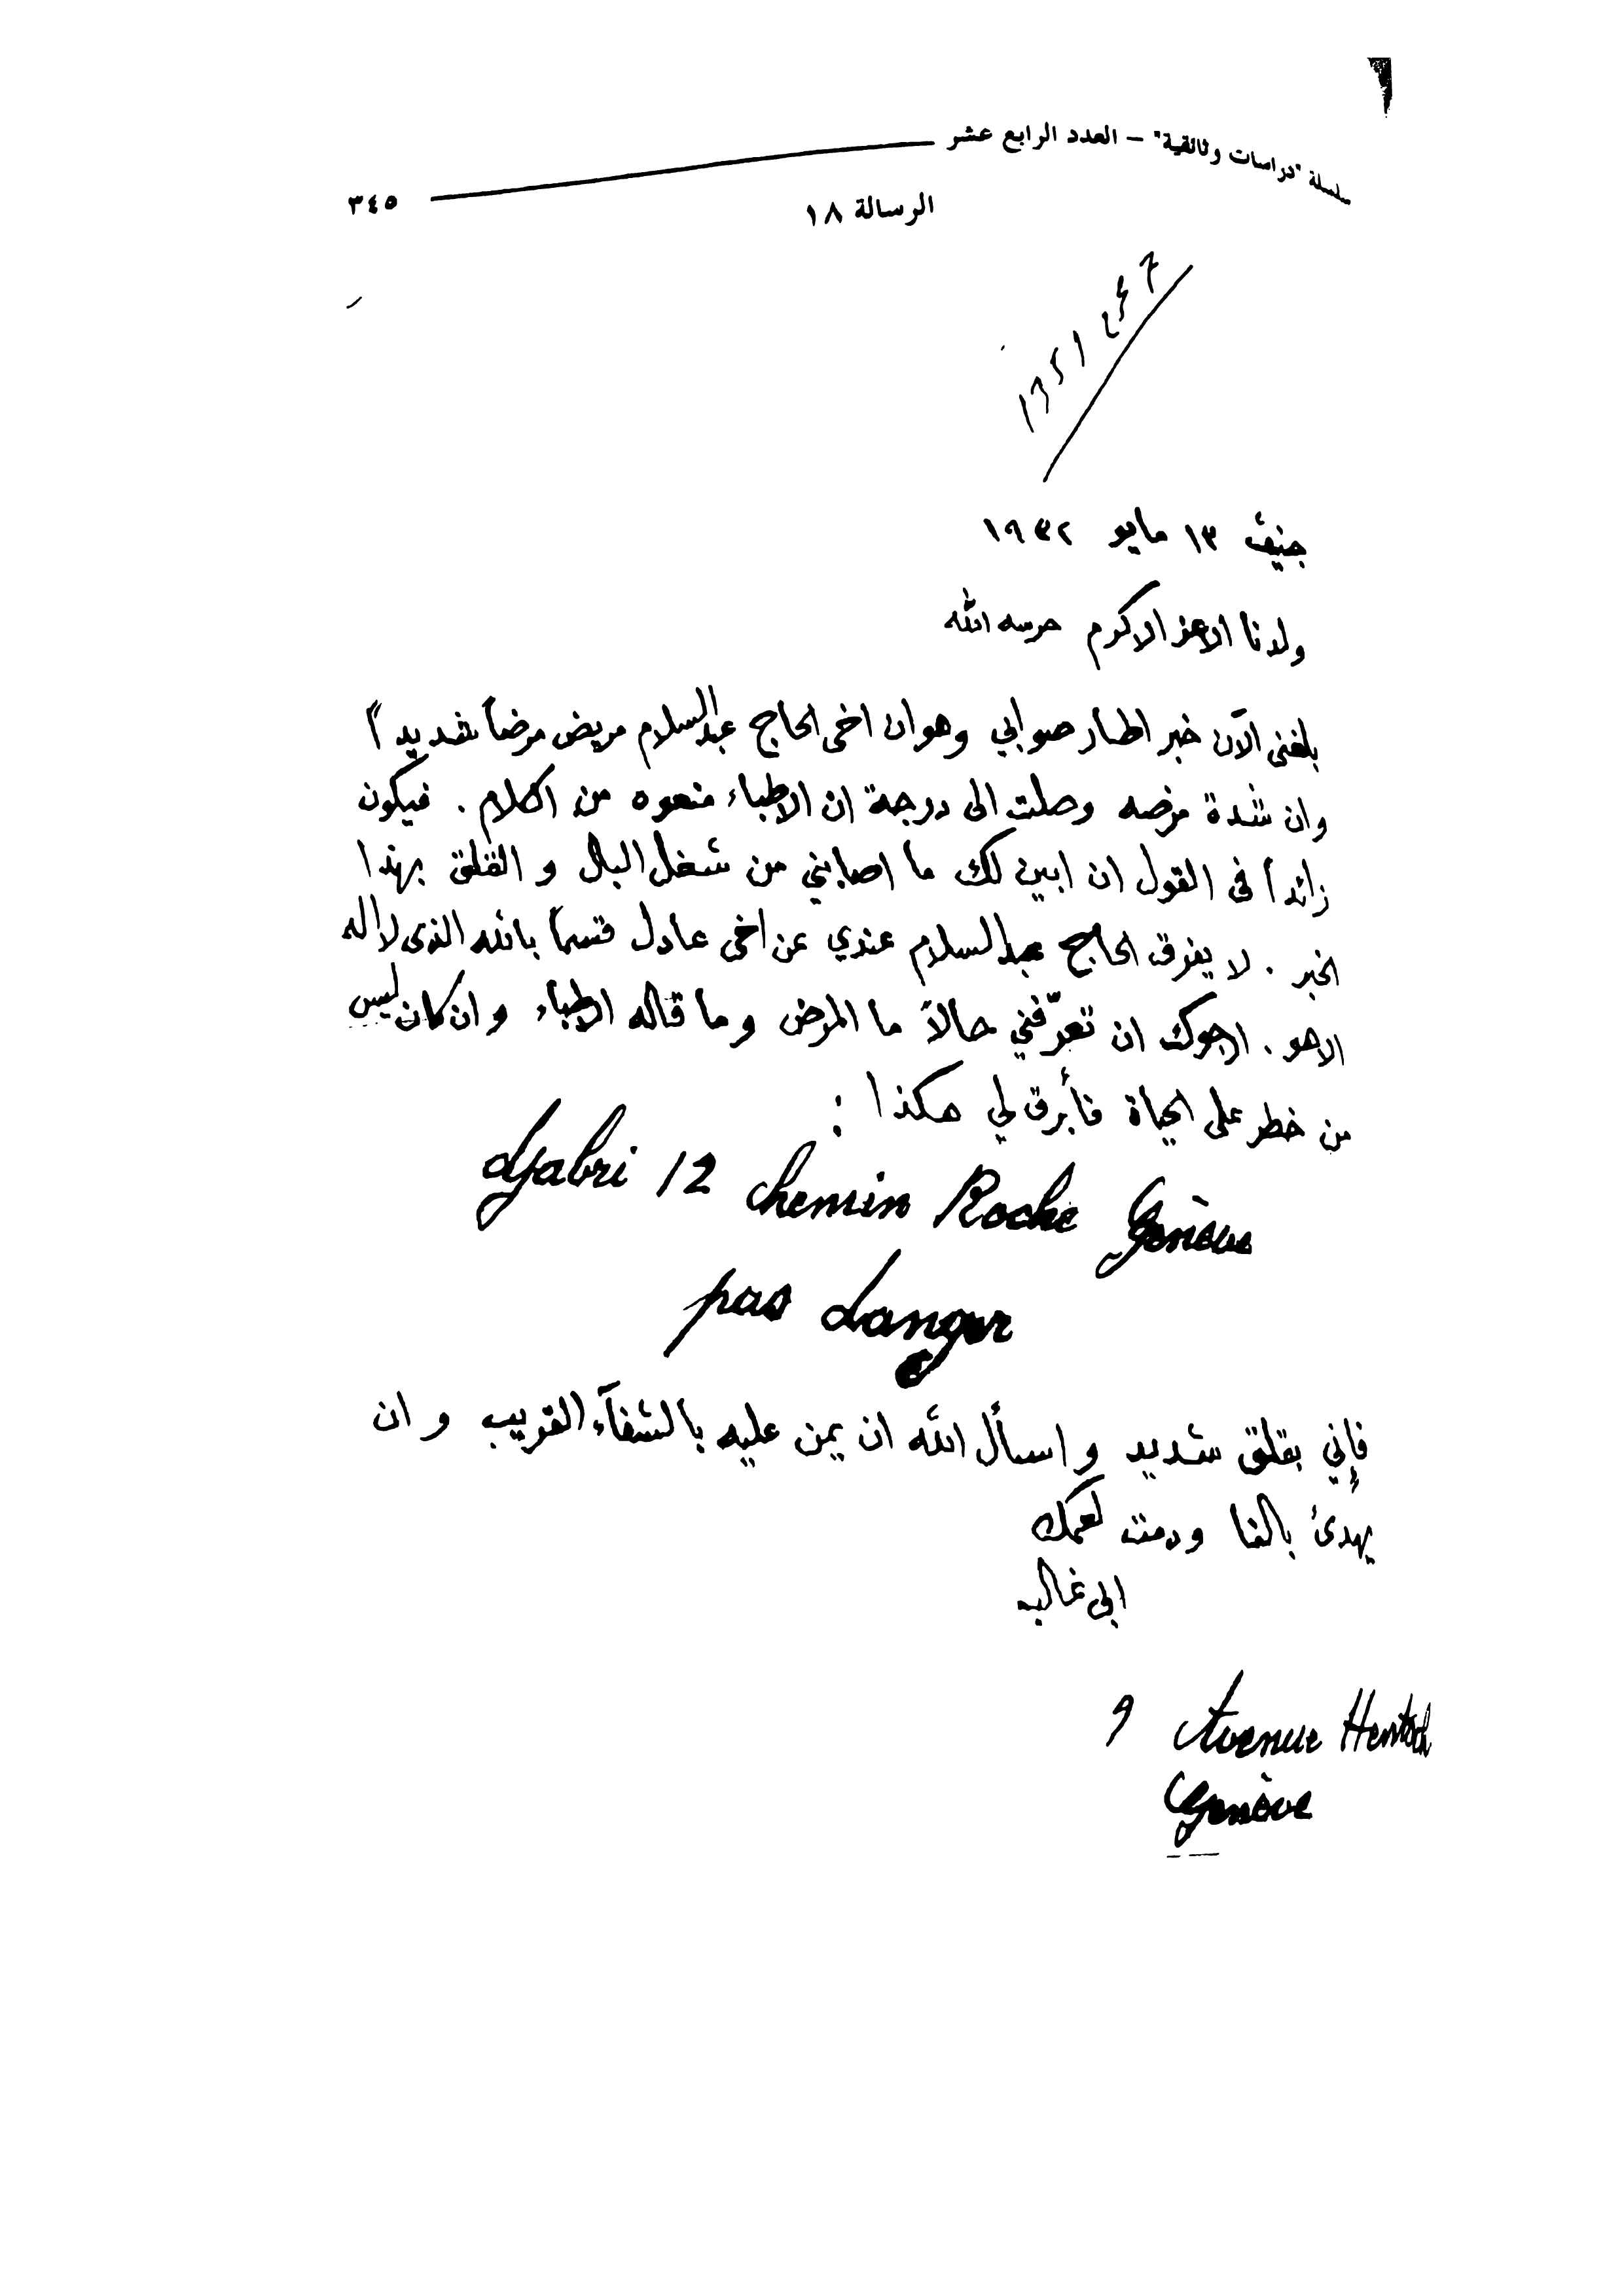 سلسلة "دراسات وثائقية" – العدد الرابع عشر
٣٤٥
الرسالة ١٨
جنيڤ ١٣ مايو ١٩٣٢
ولدنا الاعز الاكرم حرسه الله
بلغني الآن خبر اطار صوابي وهو ان اخي الحاج عبد السلام مريض مرضاً شديداً
وان شدة مرضه وصلت الى درجة ان الاطباء منعوه من الكلام . فيكون
زائداً في القول ان ابين لك ما اصابني من شغل البال و القلق بهذا
الخبر . لا يفرق الحاج عبد السلام عندي عن اخي عادل قسماً بالله الذي لا اله
الا هو . ارجوك ان تعرّفني حالاً ما المرض وما قاله الاطباء وان كان ليس
من خطر على الحياة فأبرق لي هكذا :
Djabri 12 chemin Roche Genève
pas danger
فإني بقلق شديد واسأل الله ان يمن عليه بالشفآء القريب وان
يهدئ بالنا ودمت لعمك
ابي غالب
9 Avenue Hentsch
Genève